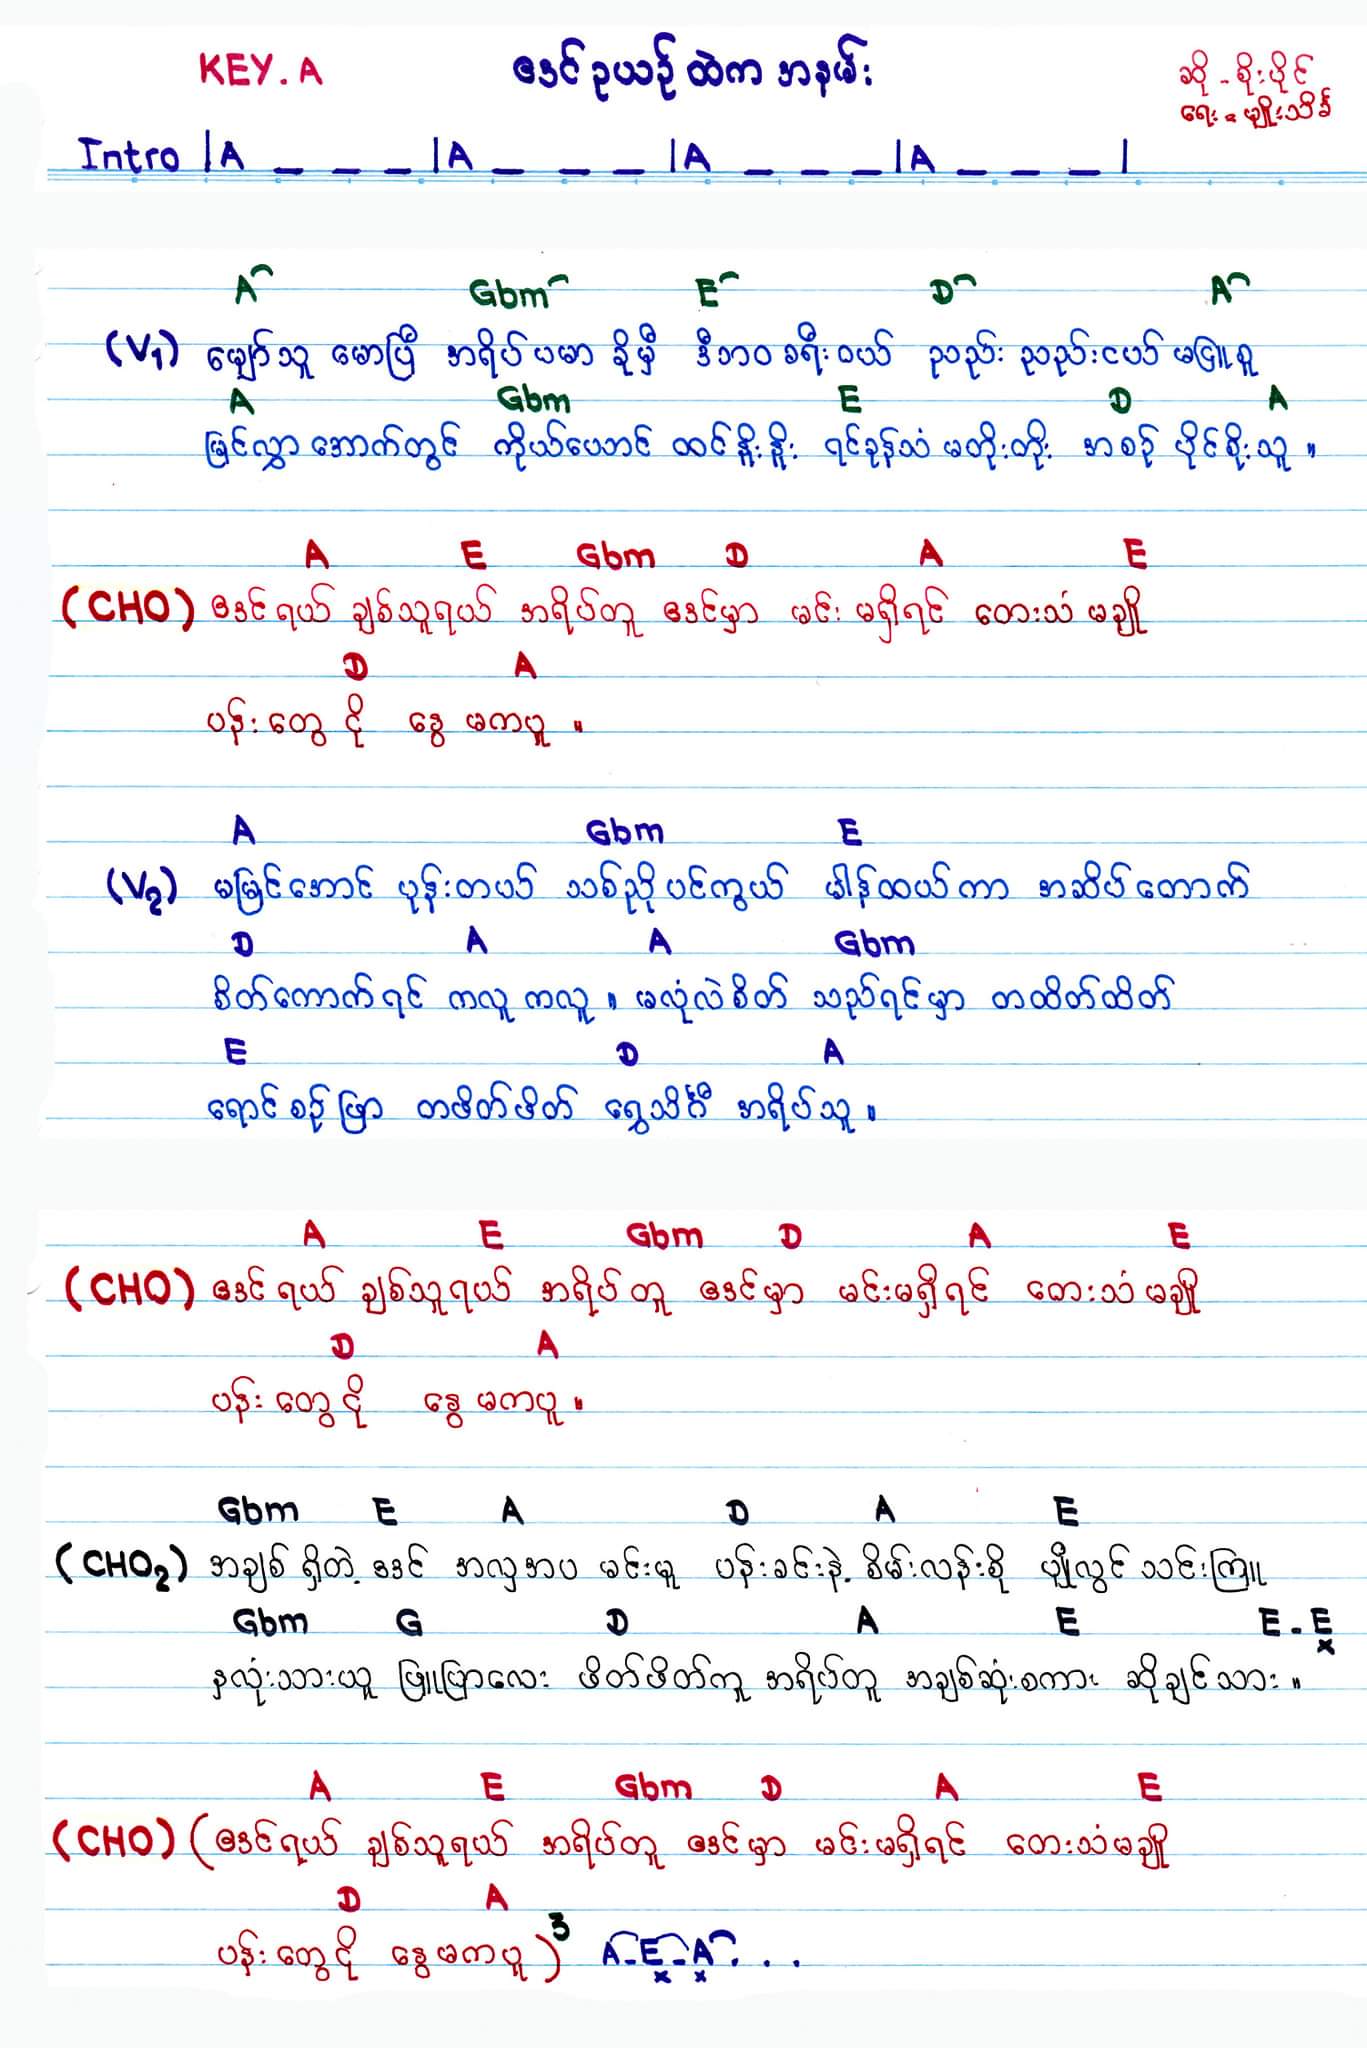 KEY.A ဧဒင်ဥယျာဉ်ထဲက အနမ်း ဆို - စိုးပိုင်
ရေး = မျိုးသိင်္ခ
Intro |A _ _ _ |A _ _ _ |A _ _ _ |A _ _ _ |
A Gbm E D A
(V1) မျှော်သူ မောပြီ အရိပ်ပမာ ခိုမှီ ဒီဘဝခရီးဝယ် ညည်း ညည်းငယ် မငြူစူ
A Gbm E D A
မြင်လွှာအောက်တွင် ကိုယ်ယောင် ထင်နိူးနိူး ရင်ခုန်သံ မတိုးတိုး အစဉ် ပိုင်စိုးသူ ။
A E Gbm D A E
(CHO) ဧဒင်ရယ် ချစ်သူရယ် အရိပ်တူ ဧဒင်မှာ မင်း မရှိရင် တေးသံ မချို
D A
ပန်းတွေ ငို နွေ မကပူ ။
A Gbm E
(V2) မမြင်အောင် ပုန်းတယ် သစ်ညိုပင်ကွယ် ဖါန်ထယ်ကာ အဆိပ်တောက်
D A A Gbm
စိတ်ကောက်ရင် ကလူ ကလူ ။ မလုံလဲစိတ် သည်ရင်မှာ တထိတ်ထိတ်
E D A
ရောင်စဉ်ဖြာ တဖိတ်ဖိတ် ရွှေသိင်္ဂီ အရိပ်သူ ။
A E Gbm D A E
(CHO) ဧဒင်ရယ် ချစ်သူရယ် အရိပ်တူ ဧဒင်မှာ မင်းမရှိရင် တေးသံ မချို
D A
ပန်းတွေငို နွေ မကပူ ။
Gbm E A D A E
(CHO2) အချစ် ရှိတဲ့ ဧဒင် အလှအပ မင်းမူ ပန်းခင်းနဲ့ စိမ်းလန်းစို ပျိုလွင် သင်းကြူ
Gbm G D A E E - E
နှလုံးသားယူ ဖြူဖြာလေး ဖိတ်ဖိတ်ကူ အရိပ်တူ အချစ်ဆုံးစကား ဆိုချင်သား ။
A E Gbm D A E
(CHO) (ဧဒင်ရယ် ချစ်သူရယ် အရိပ်တူ ဧဒင်မှာ မင်းမရှိရင် တေးသံမချို
D A
ပန်းတွေငို နွေမကပူ )3 A-E-A . . .